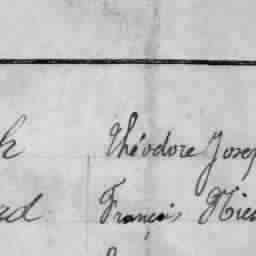 h Théodore Josep
ad François Nico